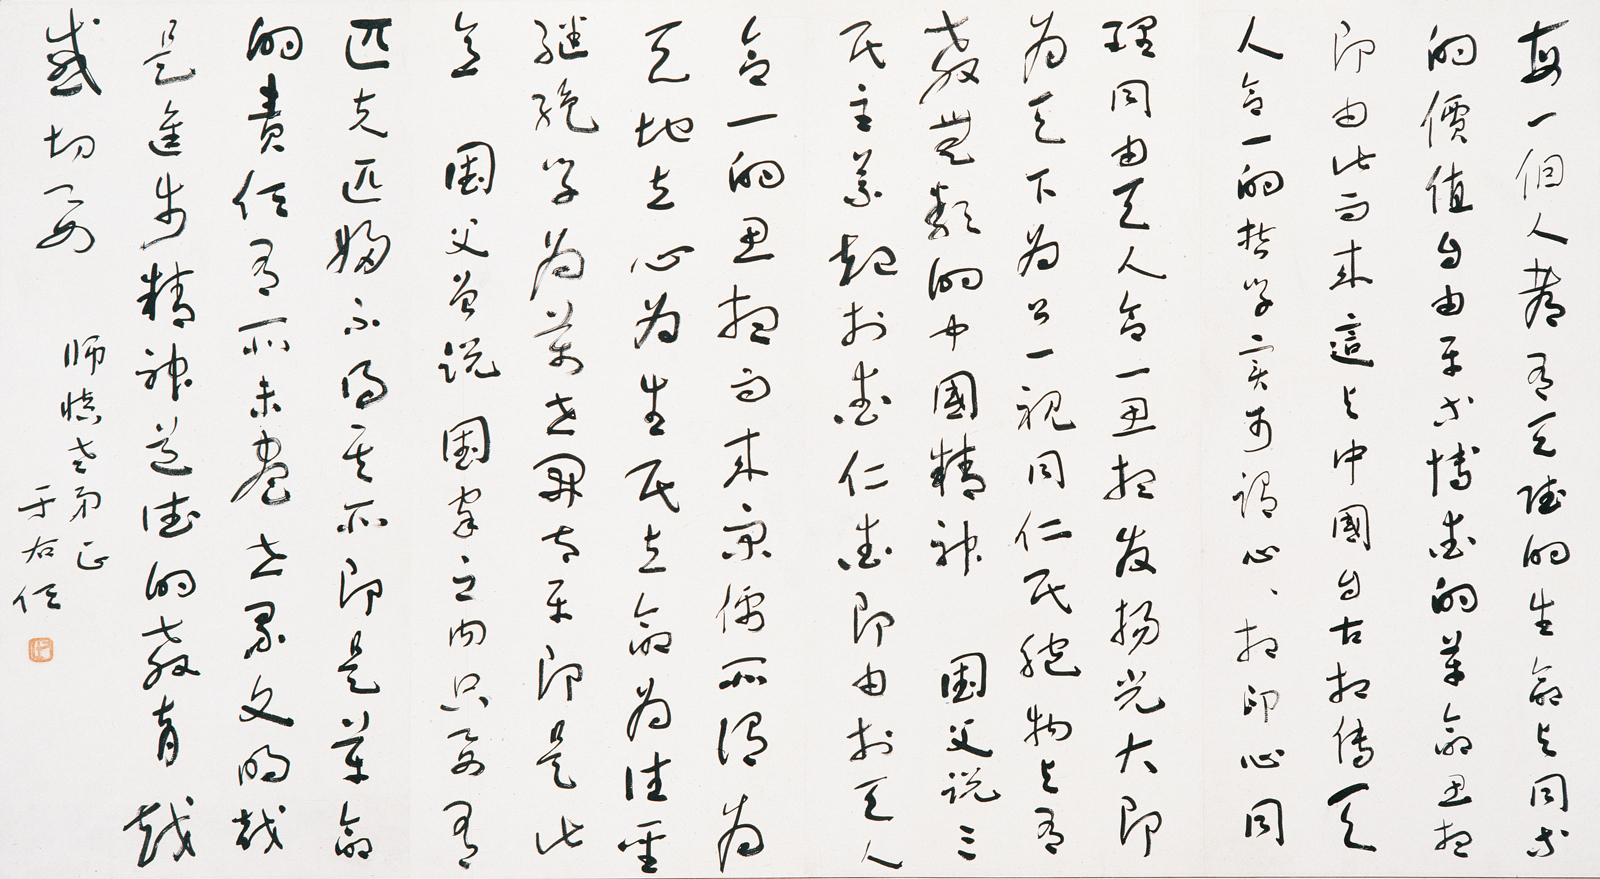 每一個人都有天賦的生命与同等
的價值自由平等博愛的革命思想
即由此而來這与中國自古相傳天
人合一的哲學實可謂心心相印心同
理同由天人合一思想發揚光大即
為天下為公一視同仁民胞物与有
教無類的中國精神 國父說三
民主義起於愛仁愛即由於天人
合一的思想而來宋儒所謂為
天地立心為生民立命為往聖
繼絕學為萬世開太平即是此
意 國父曾說國家之內只要有
匹夫匹婦不得其所即是革命
的責任有所未盡世界文明越
是進步精神道德的教育越
感切要
師慎老弟正
于右任